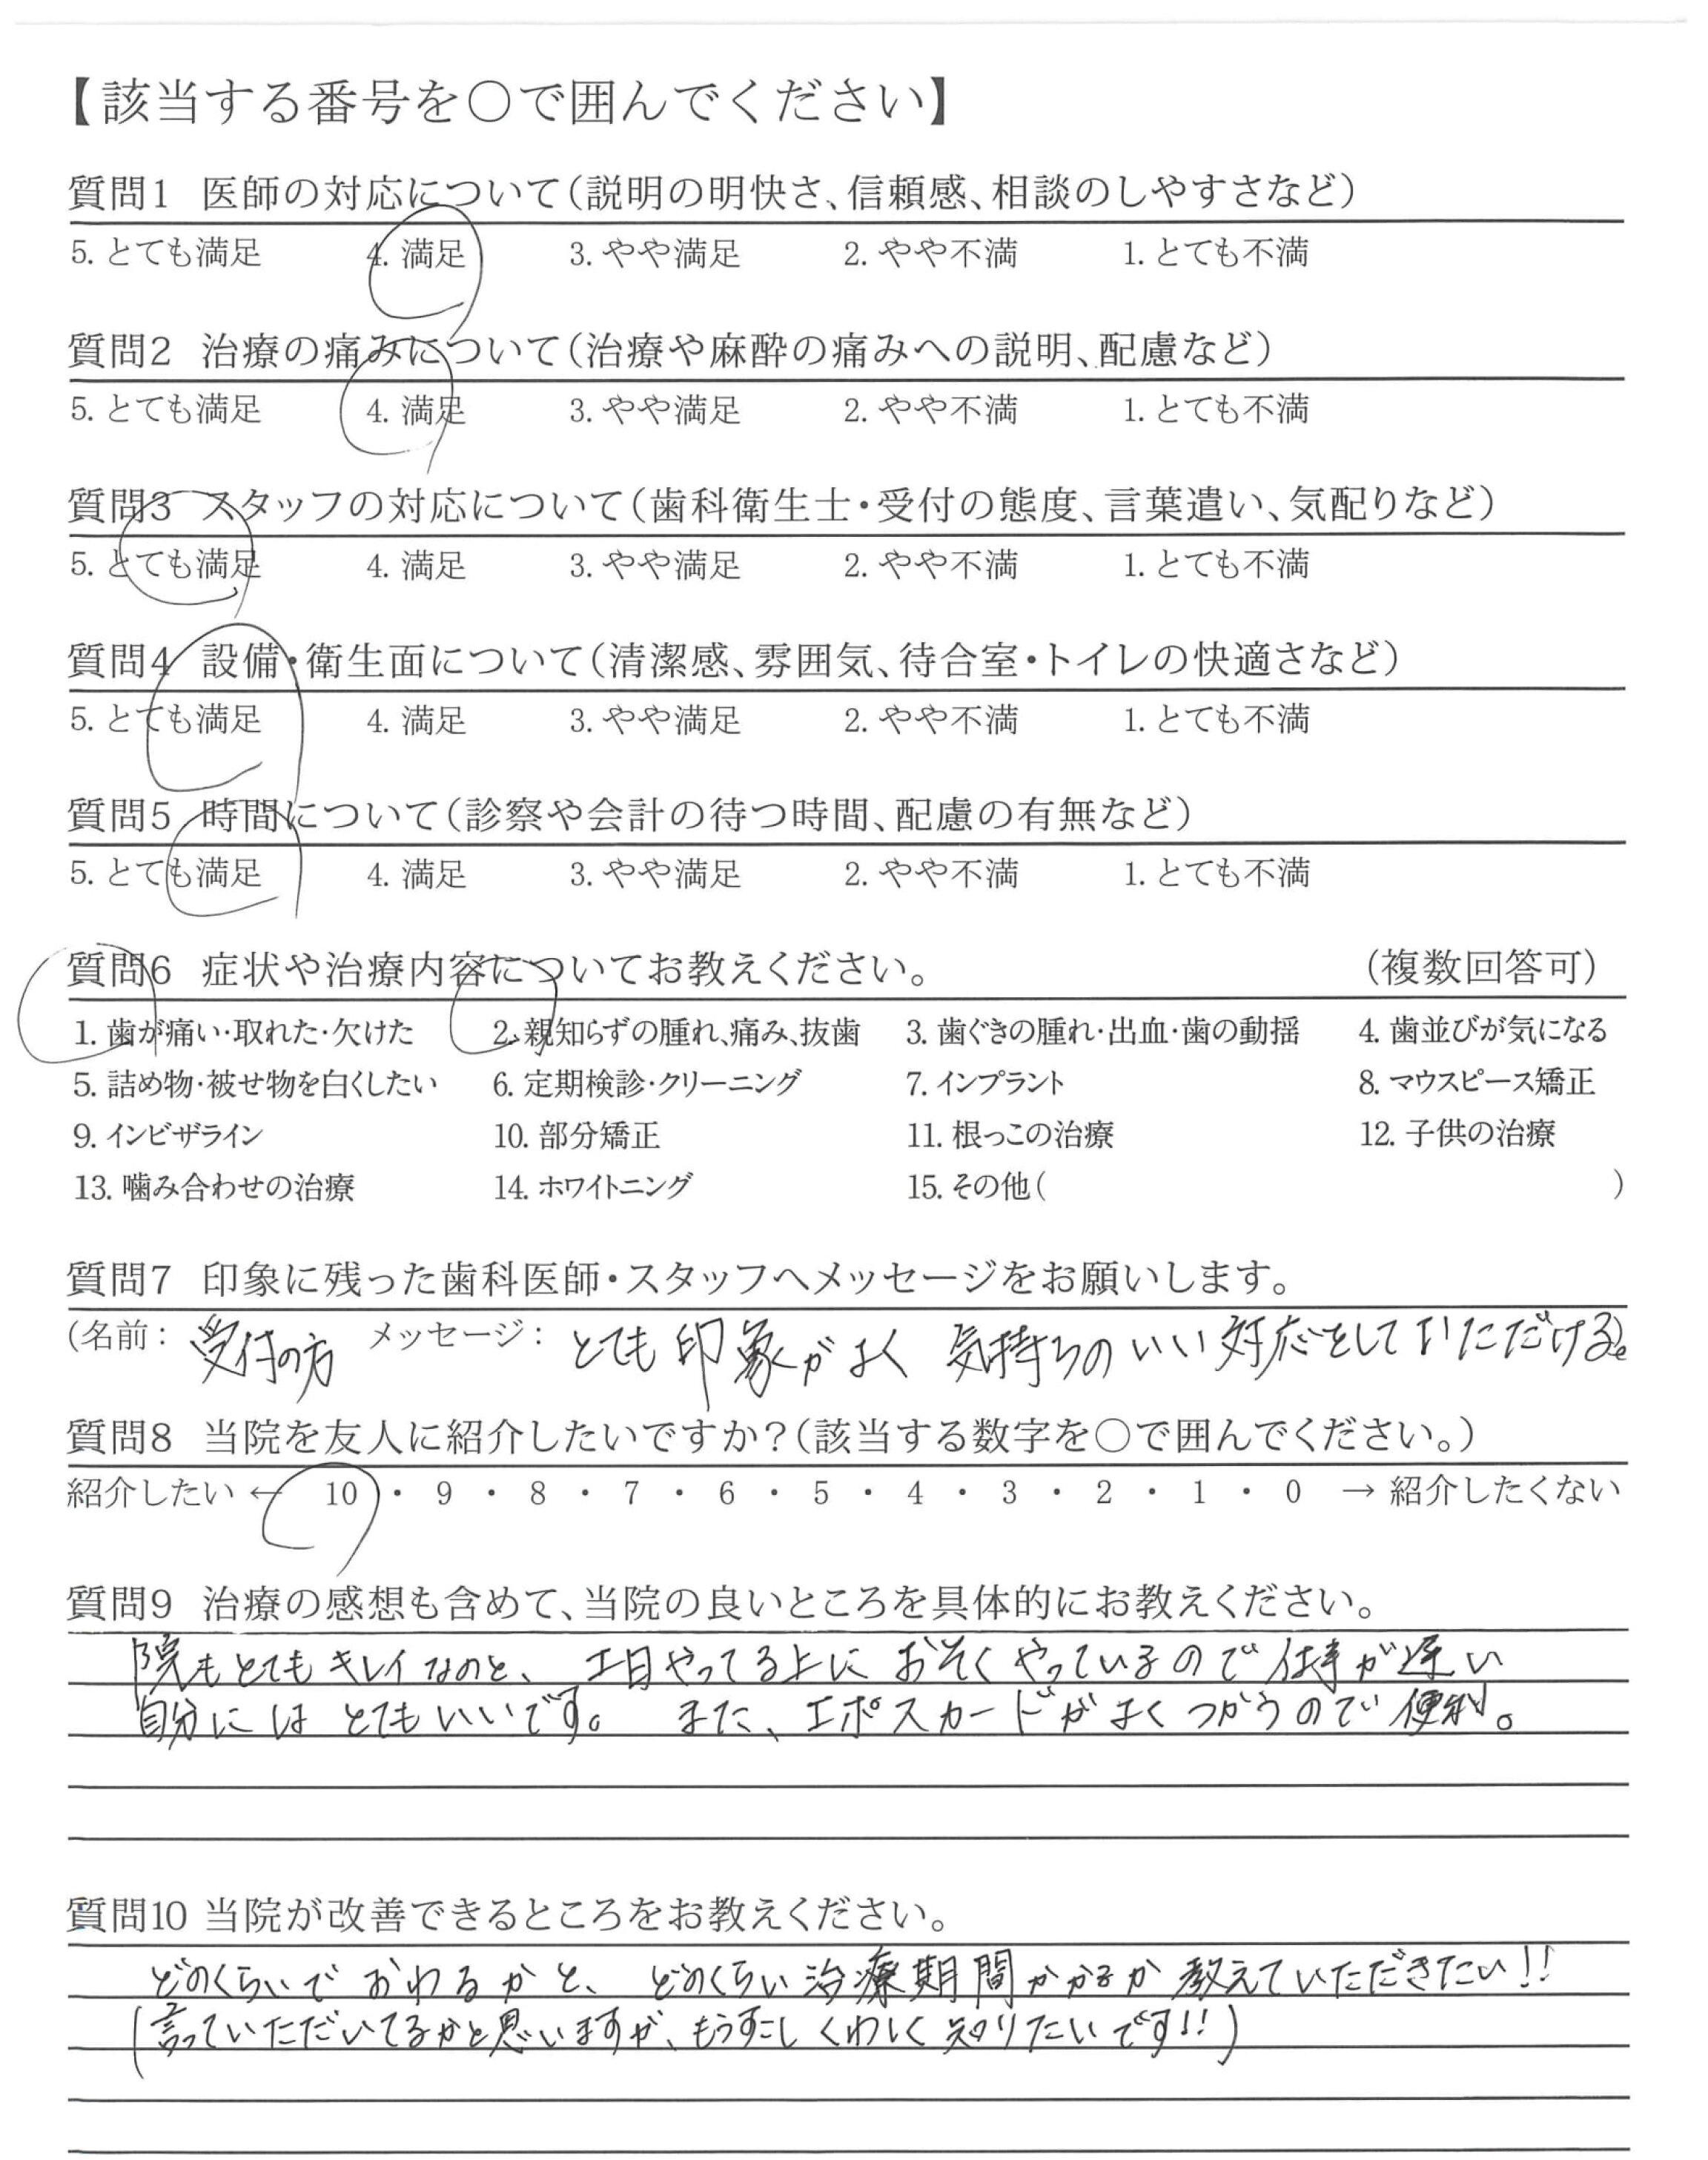 【該当する番号を○で囲んでください】
質問1 医師の対応について(説明の明快さ、信頼感、相談のしやすさなど)
5. とても満足 4. 満足 3. やや満足 2. やや不満 1. とても不満
質問2 治療の痛みについて(治療や麻酔の痛みへの説明、配慮など)
5. とても満足 4. 満足 3. やや満足 2. やや不満 1. とても不満
質問3 スタッフの対応について(歯科衛生士・受付の態度、言葉遣い、気配りなど)
5. とても満足 4. 満足 3. やや満足 2. やや不満 1. とても不満
質問4 設備・衛生面について(清潔感、雰囲気、待合室・トイレの快適さなど)
5. とても満足 4. 満足 3. やや満足 2. やや不満 1. とても不満
質問5 時間について(診察や会計の待つ時間、配慮の有無など)
5. とても満足 4. 満足 3. やや満足 2. やや不満 1. とても不満
質問6 症状や治療内容についてお教えください。 (複数回答可)
1. 歯が痛い・取れた・欠けた 2. 親知らずの腫れ、痛み、抜歯 3. 歯ぐきの腫れ・出血・歯の動揺 4. 歯並びが気になる
5. 詰め物・被せ物を白くしたい 6. 定期検診・クリーニング 7. インプラント 8. マウスピース矯正
9. インビザライン 10. 部分矯正 11. 根っこの治療 12. 子供の治療
13. 噛み合わせの治療 14. ホワイトニング 15. その他( )
質問7 印象に残った歯科医師・スタッフへメッセージをお願いします。
(名前: 受付の方 メッセージ: とても印象がよく 気持ちのいい対応をしていただける。)
質問8 当院を友人に紹介したいですか?(該当する数字を○で囲んでください。)
紹介したい ← 10 ・ 9 ・ 8 ・ 7 ・ 6 ・ 5 ・ 4 ・ 3 ・ 2 ・ 1 ・ 0 → 紹介したくない
質問9 治療の感想も含めて、当院の良いところを具体的にお教えください。
院もとてもキレイなのと、 土日やってる上に おそくやっているので 仕事が遅い
自分には とてもいいです。 また、エポスカードがよくつかうので便利。
質問10 当院が改善できるところをお教えください。
どのくらいで おわるかと、 どのくらい治療期間かかるか 教えていただきたい!!
(言っていただいてるかと思いますが、もうすこしくわしく知りたいです!!)